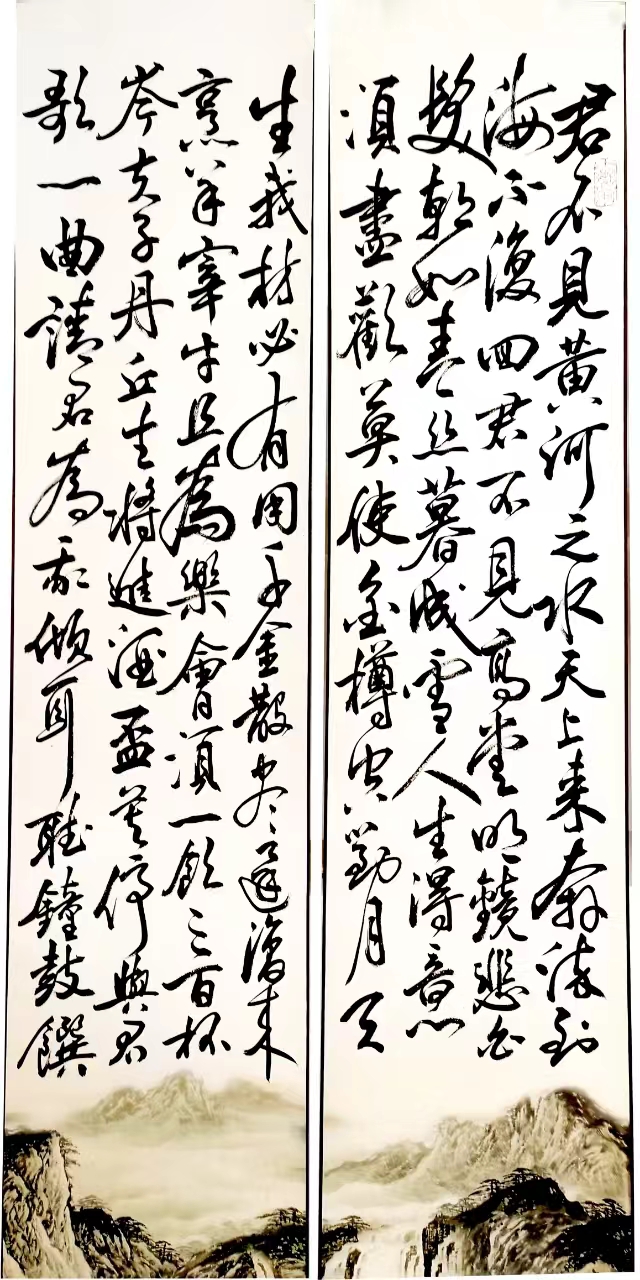 君不見黃河之水天上来奔流到
海不復回君不見高堂明鏡悲白
髮朝如青丝暮成雪人生得意
須盡歡莫使金樽空對月天
生我材必有用千金散尽還復来
烹羊宰牛且為樂會須一飲三百杯
岑夫子丹丘生將進酒盃莫停與君
歌一曲請君為我傾耳聽鐘鼓饌